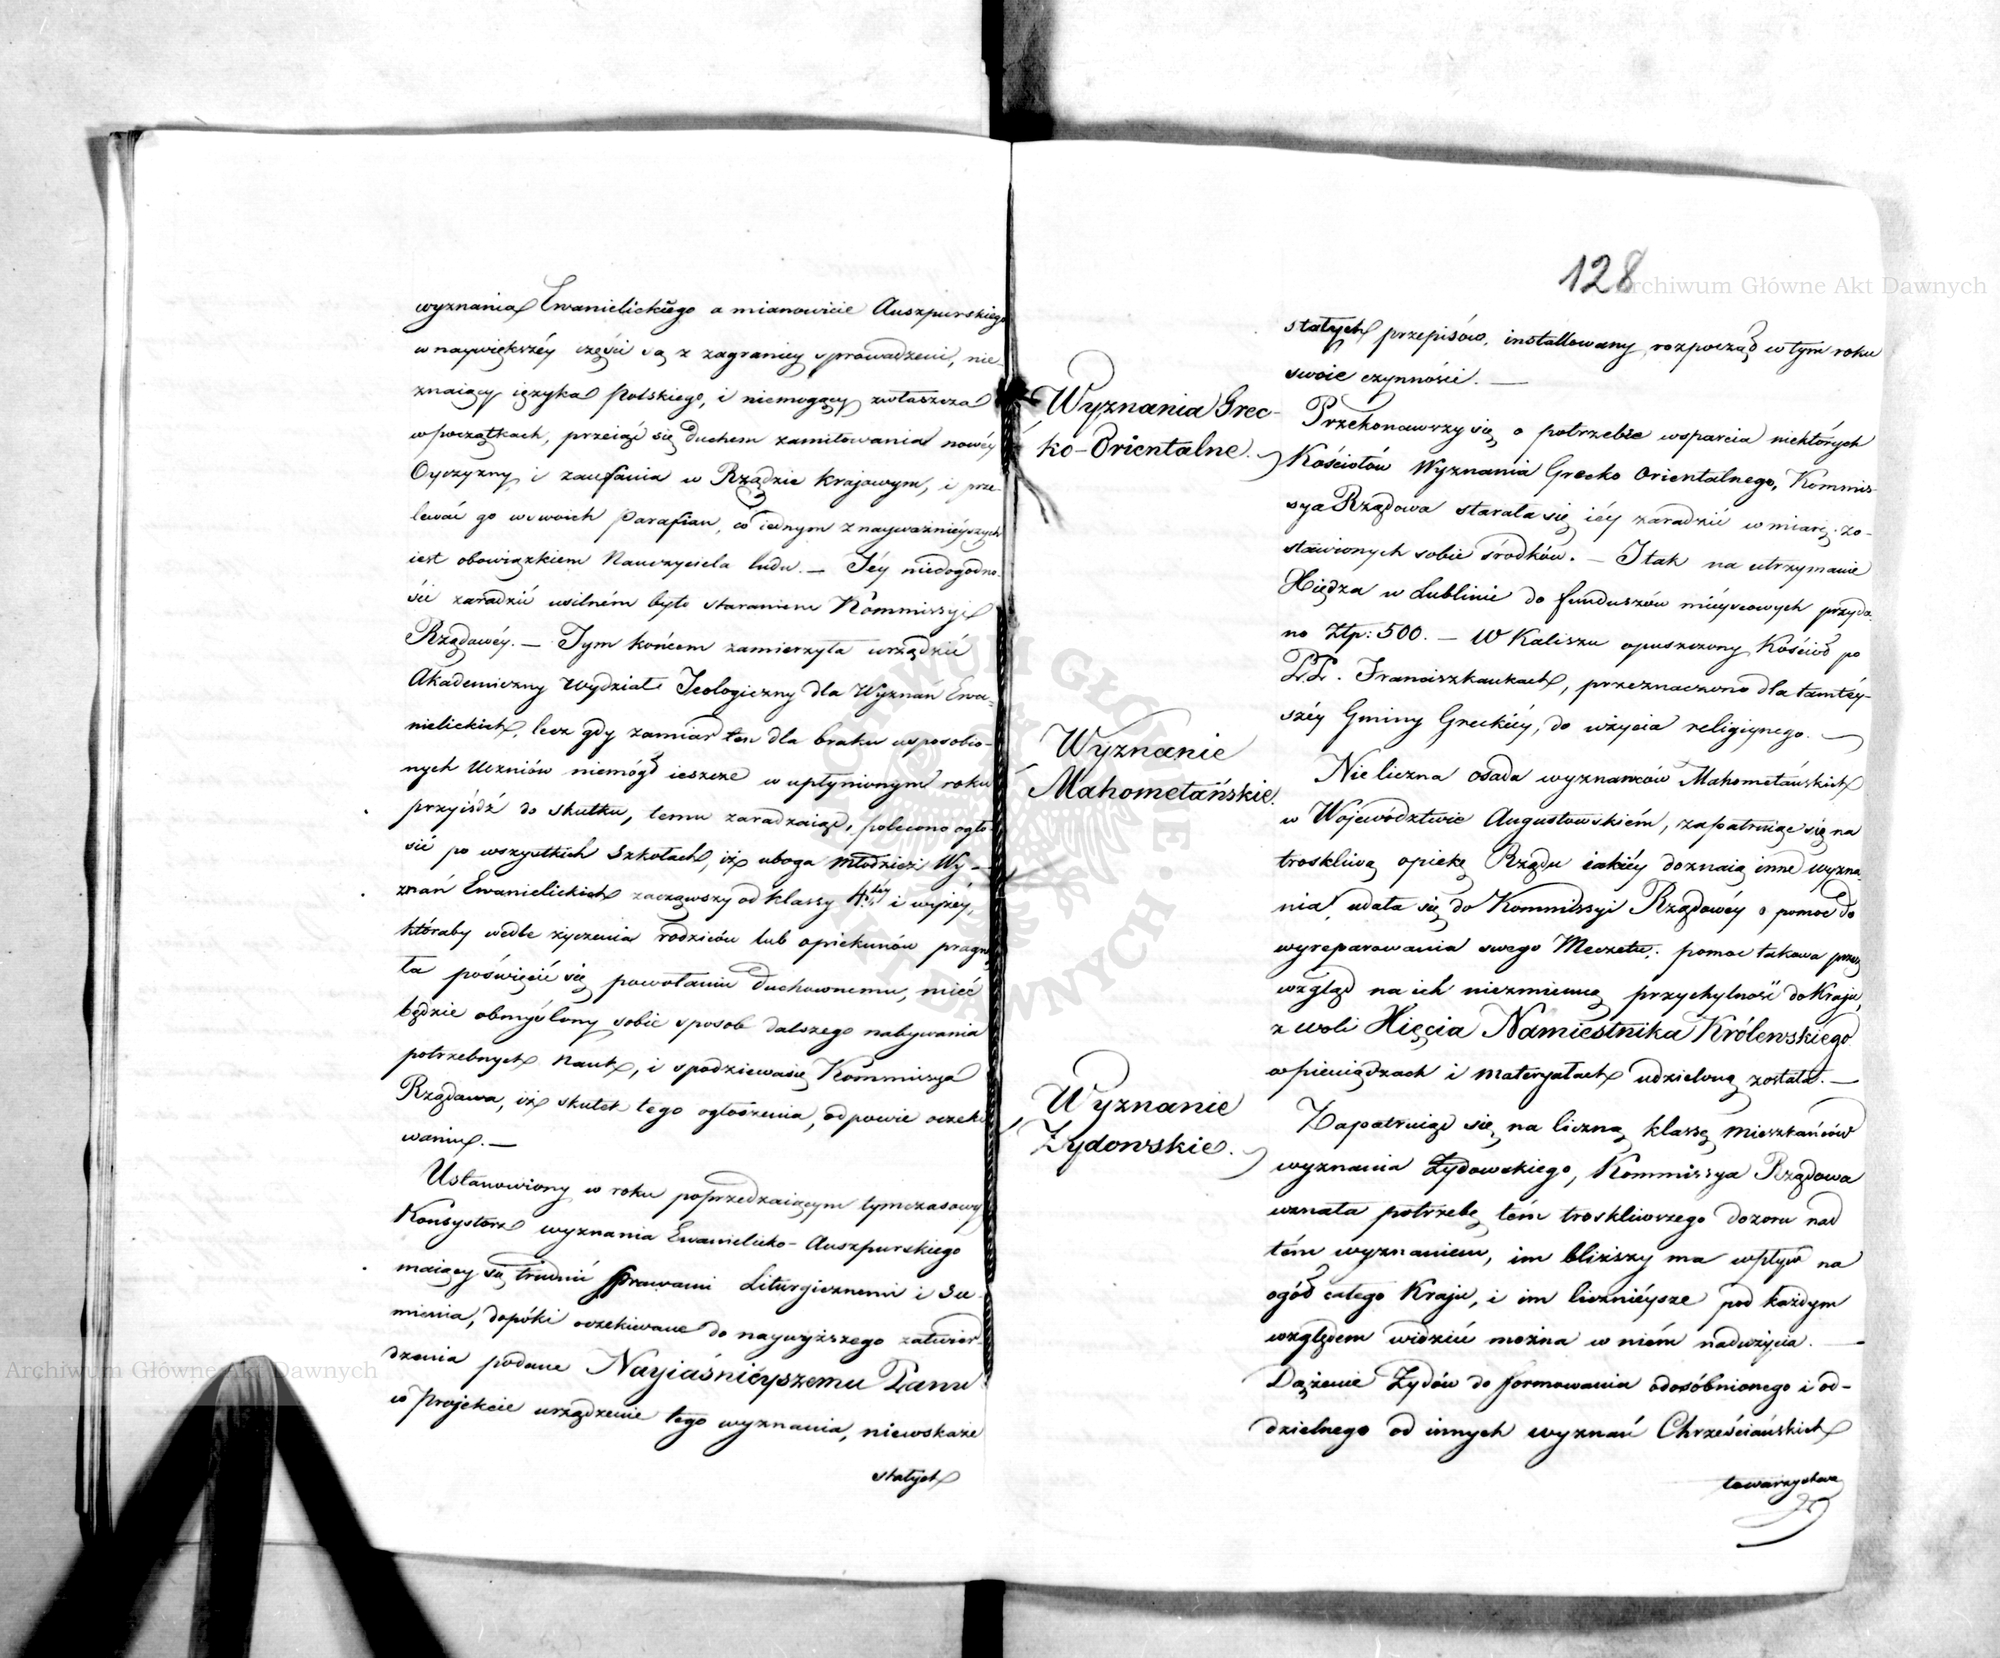 wyznania Ewanielickiego a mianowicie Auszpurskiego
w naywiększéy części są z zagranicy sprowadzeni, nie-
znaiący ięzyka polskiego, i niemogący zwłaszcza
w początkach, przeiąć się duchem zamiłowania nowéy
Oyczyzny i zaufania w Rządzie krajowym, i prze-
lewać go w swoich parafian, co iednym z nayważnieyszych
iest obowiązkiem Nauczyciela ludu. — Téy niedogodno-
ści zaradzić usilném było staraniem Kommissyi
Rządowéy. — Tym końcem zamierzyła urządzić
Akademiczny Wydział Teologiczny dla Wyznań Ewa-
nielickich, lecz gdy zamiar ten dla braku usposobio-
nych Uczniów niemógł ieszcze w upłynionym roku
przyiśdź do skutku, temu zaradzaiąc, polecono ogło-
sić po wszystkich Szkołach, iż uboga młodzież Wy-
znań Ewanielickich zacząwszy od klassy 4téy i wyżéy,
któraby wedle życzenia rodziców lub opiekunów pragnę
ła poświęcić się powołaniu duchownemu, mieć
będzie obmyślony sobie sposob dalszego nabywania
potrzebnych Nauk, i spodziewa się Kommissya
Rządowa, iż skutek tego ogłoszenia, odpowie oczeki
waniu. —
Ustanowiony w roku poprzedzaiącym tymczasowy
Konsystorz wyznania Ewanielicko-Auszpurskiego
maiący się trudnić sprawami Liturgicznemi i Su-
mienia, dopóki oczekiwane do naywyższego zatwier-
dzenia podane Nayiaśniéyszemu Panu
w Projekcie urządzenie tego wyznania, niewskaże
stałych
128
stałych przepisów, installowany rozpoczął w tym roku
swoie czynności. —
Wyznania Grec-
ko-Orientalne.
Przekonawszy się o potrzebie wsparcia niektórych
Kościołów Wyznania Grecko Orientalnego, Kommis-
sya Rządowa starała się iéy zaradzić w miarę zo-
stawionych sobie środków. — I tak na utrzymanie
Xiędza w Lublinie do funduszów mieyscowych przyda-
no Złp: 500. — W Kaliszu opuszczony Kościół po
PP. Franciszkankach, przeznaczono dla tamtéy-
széy Gminy Greckiéy, do użycia religiynego.
Wyznanie
Mahometańskie.
Nieliczna osada wyznawców Mahometańskich
w Województwie Augustowskiém, zapatruiąc się na
troskliwą opiekę Rządu iakiéy doznaią inne wyzna-
nia, udała się do Kommissyi Rządowéy o pomoc do
wyreparowania swego Meczetu; pomoc takowa przez
wzgląd na ich niezmienną przychylność do Kraju,
z woli Xięcia Namiestnika Królewskiego
w pieniądzach i materyałach udzieloną została. —
Wyznanie
Żydowskie.
Zapatruiąc się na liczną klassę mieszkańców
wyznania Żydowskiego, Kommissya Rządowa
uznała potrzebę tém troskliwszego dozoru nad
tém wyznaniem, im bliższy ma wpływ na
ogół całego Kraju, i im licznieysze pod każdym
względem widzieć można w niém nadużycia. —
Dążenie Żydów do formowania odosóbnionego i od-
dzielnego od innych wyznań Chrześciańskich
towarzystwa
Archiwum Główne Akt Dawnych
Archiwum Główne Akt Dawnych
ARCHIWUM GŁÓWNE AKT DAWNYCH